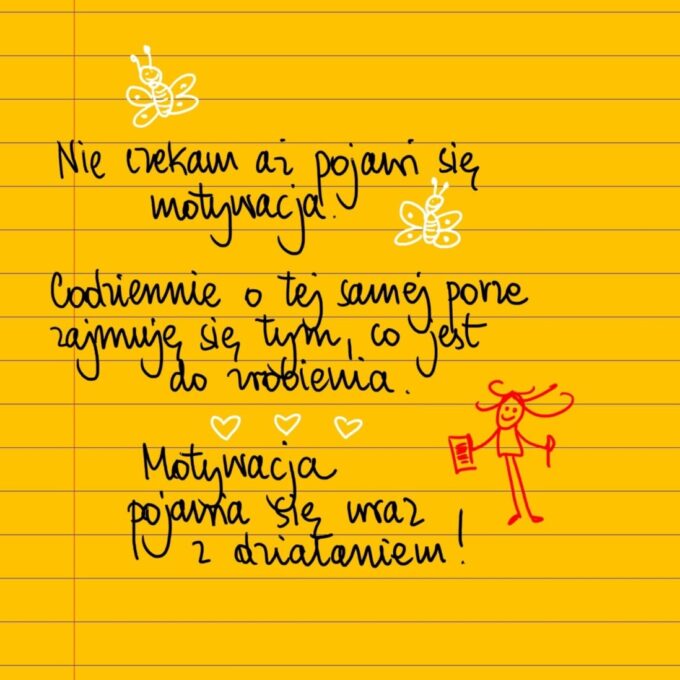 Nie czekam aż pojawi się
motywacja.
Codziennie o tej samej porze
zajmuję się tym, co jest
do zrobienia.
Motywacja
pojawia się wraz
z działaniem!